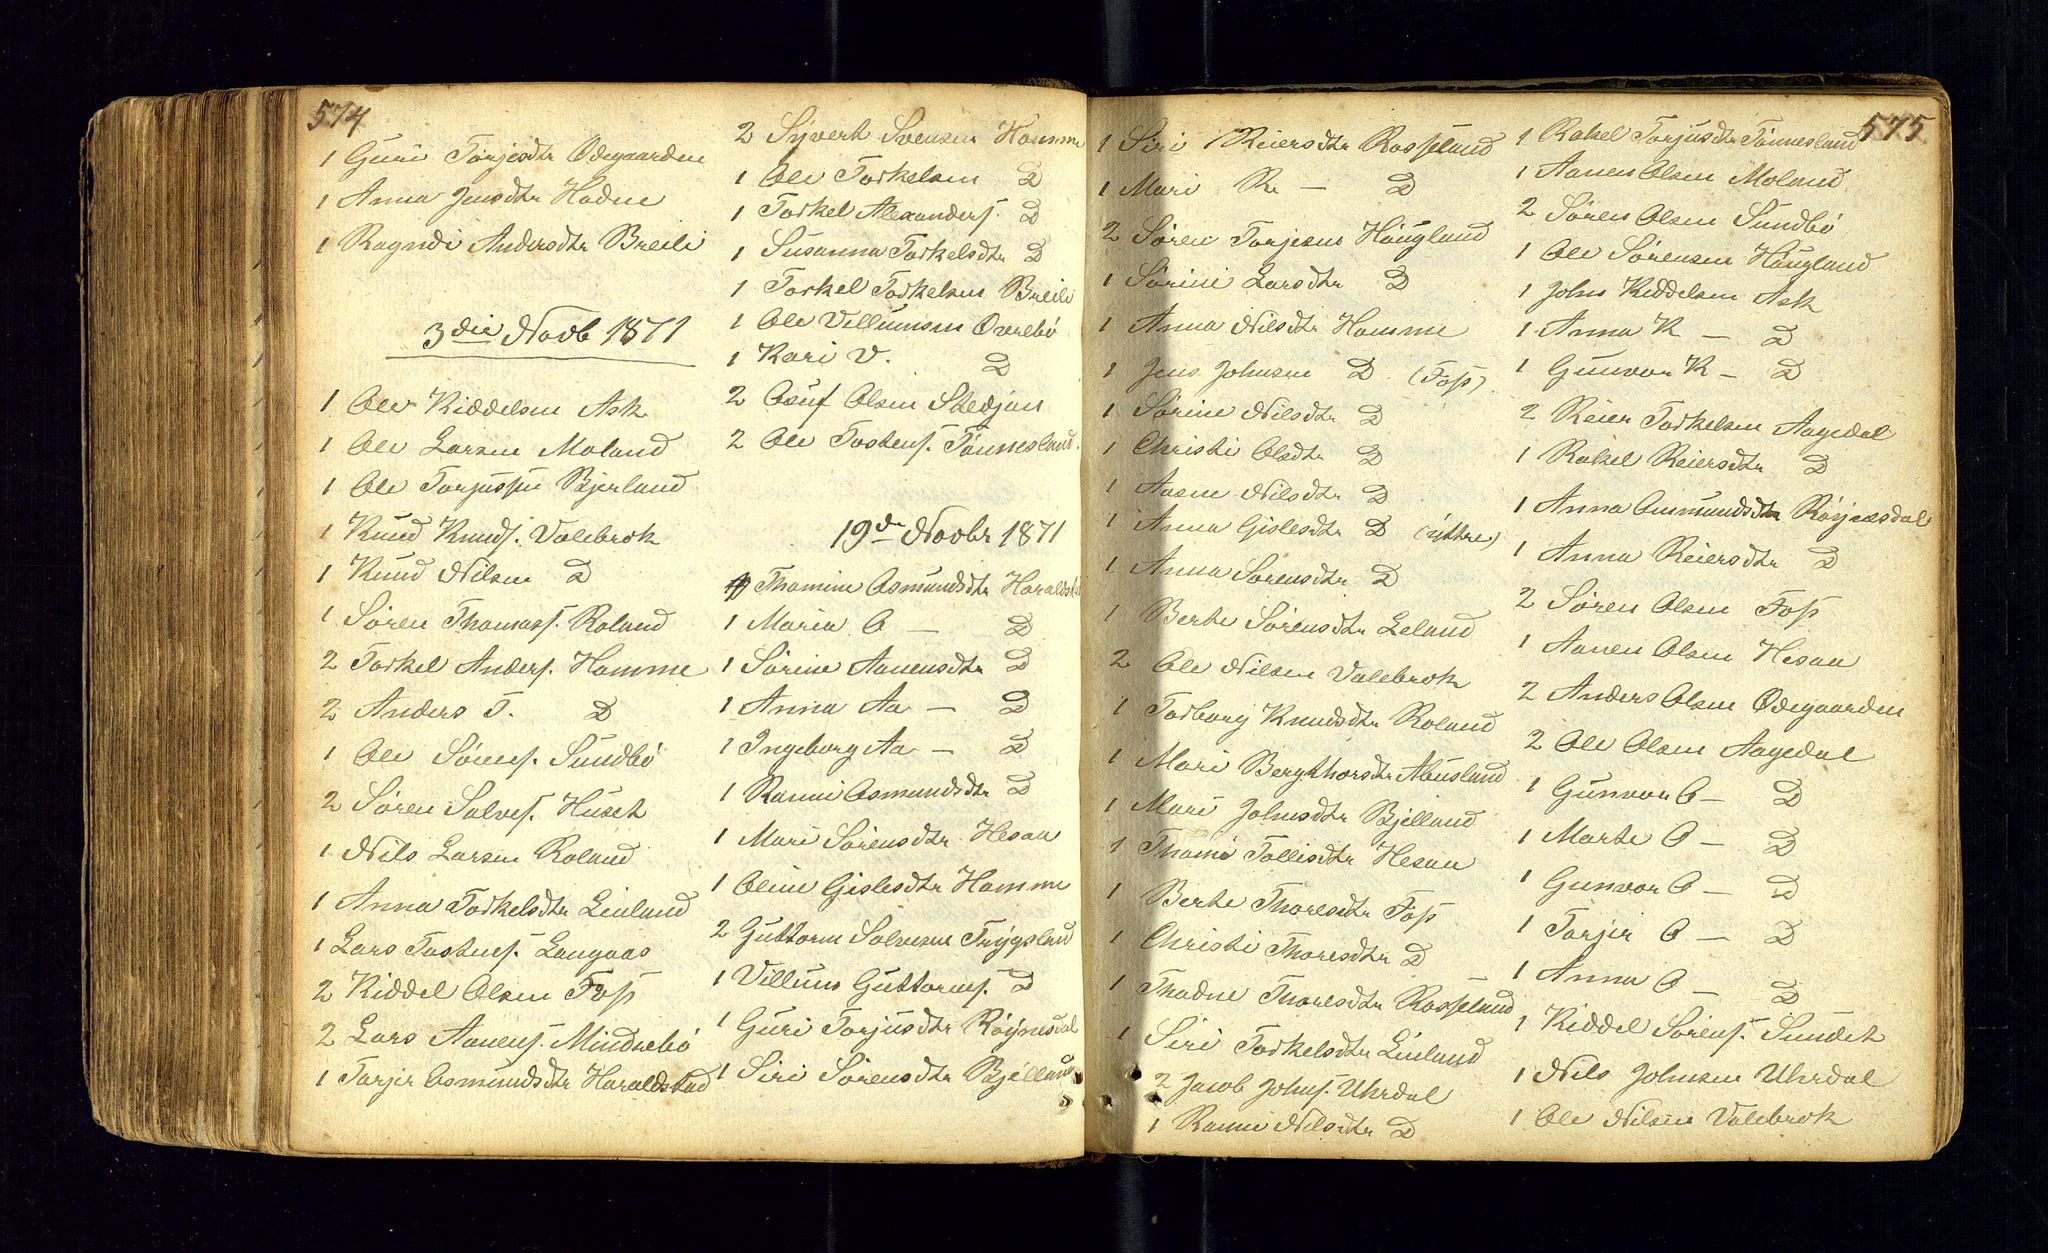 574
1 Guri Torjesdtr Ødegaarden
1 Anna Jensdtr Hodne
1 Ragndi Andersdtr Breili
3die Novb 1871
1 Ole Kiddelsen Ask
1 Ole Larsen Moland
1 Ole Torjussen Bjerland
1 Knud Knuds. Valebrok
1 Knud Nilsen D
1 Søren Thomass. Roland
2 Torkel Anders. Homme
2 Anders T. D
1 Ole Sørens. Sundbø
2 Søren Salves. Huset
1 Nils Larsen Roland
1 Anna Torkelsdtr Linland
1 Lars Tostens. Langaas
2 Kiddel Olsen Foss
2 Lars Aanens. Mindrebø
1 Torjer Osmundsdtr Haraldstad
2 Syvert Svensen Homme
1 Ole Torkelsen D
1 Torkel Alexanders. D
1 Susanna Torkelsdtr D
1 Torkel Torkelsen Breili
1 Ole Villumsen Overebø
1 Kari V. D
2 Osuf Olsen Stedjan
2 Ole Tostens. Tønnesland.
19de Novbr 1871
1 Thomine Osmundsdtr Haraldstad
1 Maria O — D
1 Sørine Aanensdtr D
1 Anna Aa — D
1 Ingeborg Aa — D
1 Ranni Osmundsdtr D
1 Mari Sørensdtr Hesaa
1 Oline Gislesdtr Homme
2 Guttorm Salvesen Trygsland
1 Villum Guttorms. D
1 Guri Torjusdtr Røynesdal
1 Siri Sørensdtr Bjelland
575
1 Siri Reiersdtr Rosseland
1 Mari R. — D
2 Søren Torjesens Høugland
1 Sørine Larsdtr D
1 Anna Nilsdtr Homme
1 Jens Johnsen D (Foss)
1 Sørine Nilsdtr D
1 Christi Olsdtr D
1 Aasne Nilsdtr D
1 Anna Gislesdtr D (yttre)
1 Anna Sørensdtr D
1 Berte Sørensdtr Leland
2 Ole Nilsen Valebrok
1 Torborg Knudsdtr Roland
1 Mari Bergthorsdtr Abusland
1 Mari Johnsdtr Bjelland
1 Thomi Tollisdtr Hesaa
1 Berte Thoresdtr Foss
1 Christi Thoresdtr D
1 Thodne Thoresdtr Rosseland
1 Siri Torkelsdtr Linland
2 Jacob Johns. Uhrdal
1 Ranni Nilsdtr D
1 Rakel Torjusdtr Tønnesland
1 Aanen Olsen Moland
2 Søren Olsen Sundbø
1 Ole Sørensen Høugland
1 John Kiddelsen Ask
1 Anna K — D
1 Gunvor K — D
2 Reier Torkelsen Aagedal
1 Rakel Reiersdtr D
1 Anna Aumundsdtr Røynesdal
1 Anna Reiersdtr D
2 Søren Olsen Foss
1 Aanen Olsen Hesaa
2 Anders Olsen Ødegaarden
2 Ole Olsen Aagedal
1 Gunvor O — D
1 Marte O — D
1 Gunvor O — D
1 Torjer O — D
1 Anna O — D
1 Kiddel Sørens. Sundet
1 Nils Johnsen Uhrdal
1 Ole Nilsen Valebrok